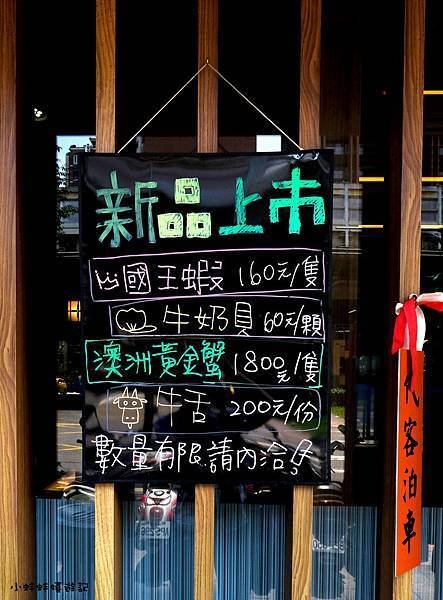 新品上市
國王蝦 160元/隻
牛奶貝 60元/顆
澳洲黃金蟹 1800元/隻
牛舌 200元/份
數量有限請內洽!
代客泊車